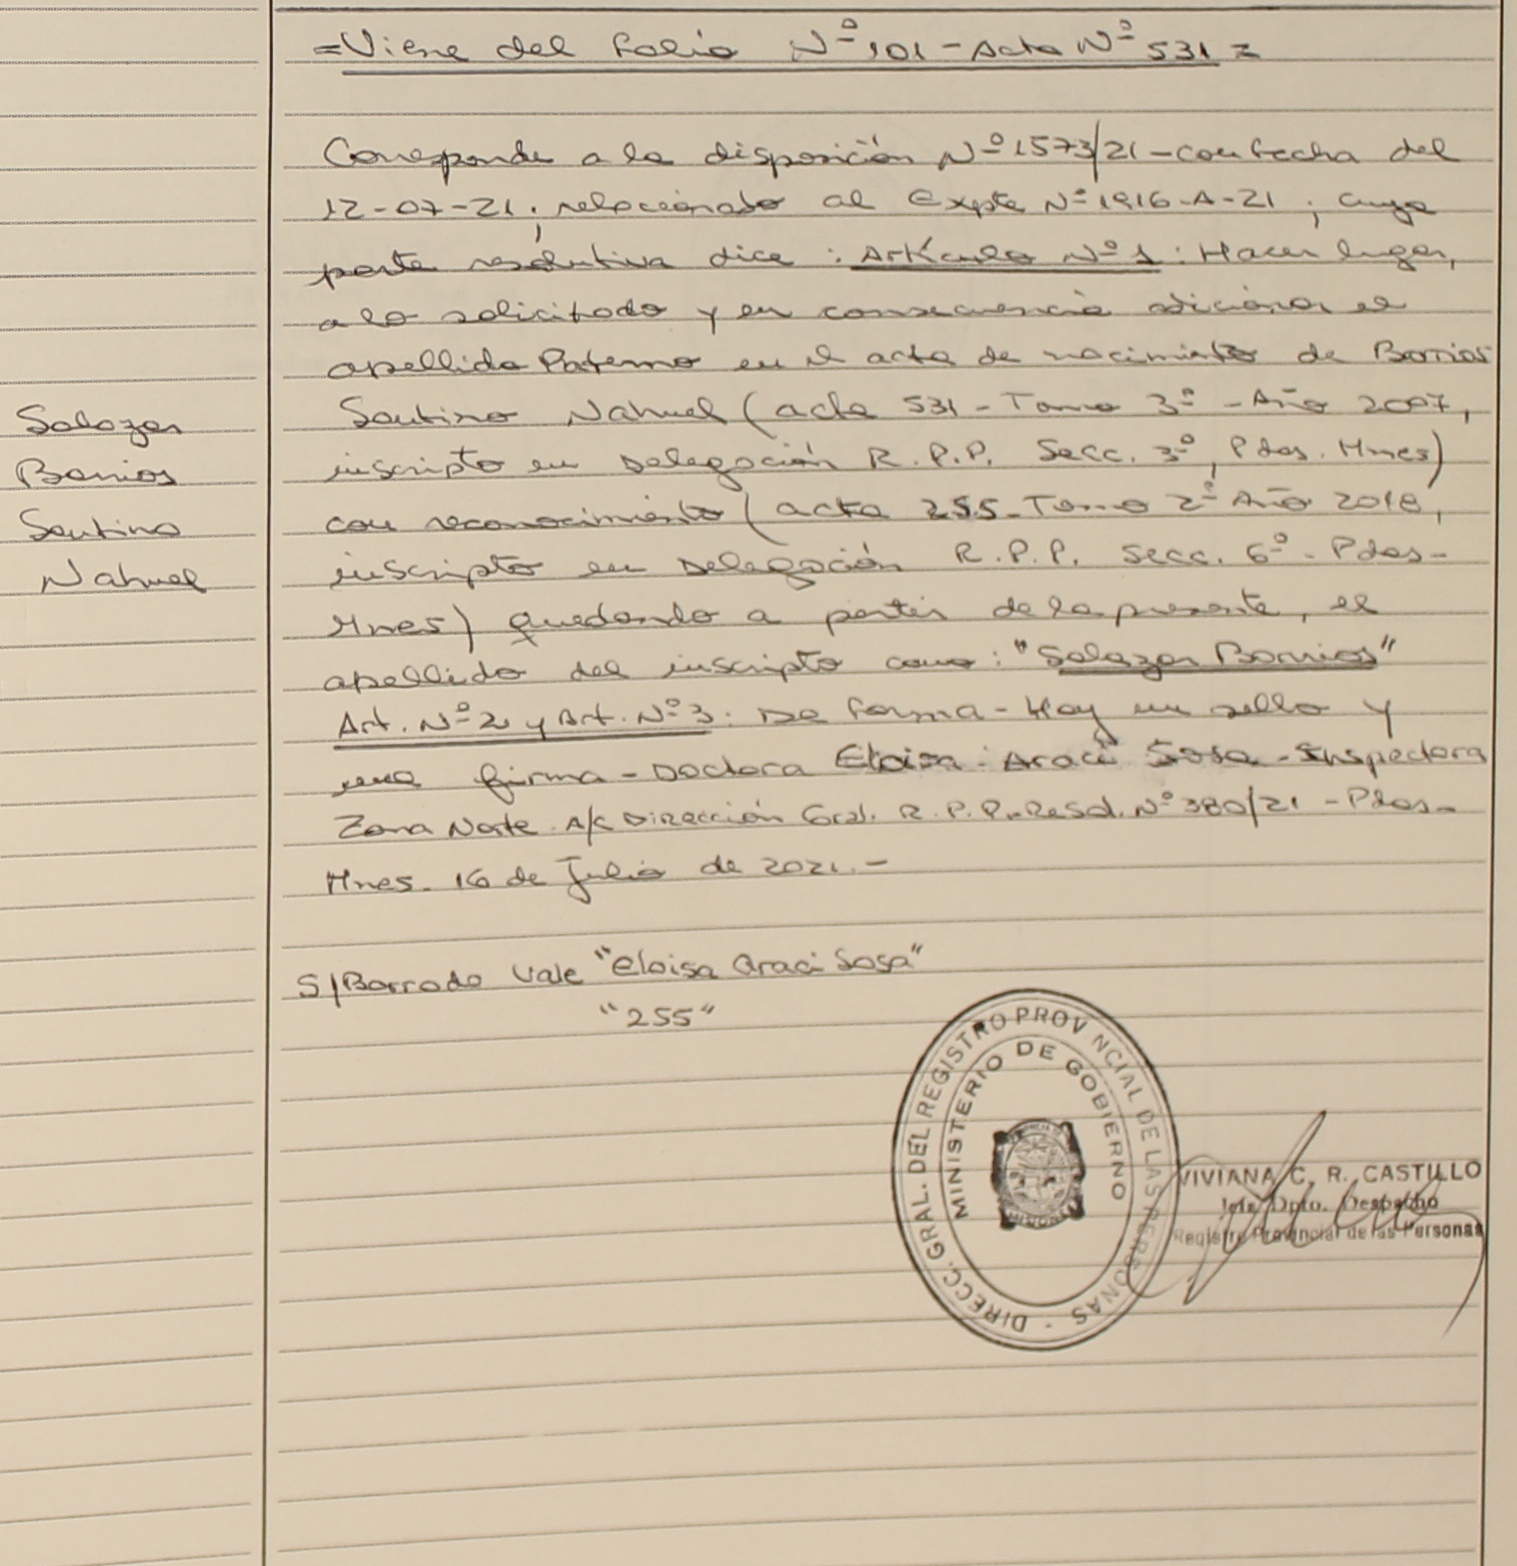 =Viene del Folio Nº 101 - Acta Nº 531 =
Corresponde a la disposición Nº 1573/21 - con fecha del
12-07-21, relacionado al Expte Nº 1916-A-21, cuya
parte resolutiva dice : Artículo Nº 1 : Hacer lugar,
a lo solicitado y en consecuencia adicionar el
apellido Paterno en el acta de nacimiento de Barrios
Santino Nahuel (acta 531 - Tomo 3º - Año 2007,
inscripto en Delegación R.P.P. Secc. 3º, Pdas. Mnes)
con reconocimiento (acta 255 - Tomo 2º Año 2018,
inscripto en Delegación R.P.P. Secc. 6º - Pdas-
Mnes) quedando a partir de la presente, el
apellido del inscripto como: "Salazar Barrios"
Art. Nº 2 y Art. Nº 3 : De forma - Hay un sello y
una firma - Doctora Eloisa Araci Sosa - Inspectora
Zona Norte A/C Dirección Gral. R.P.P. Resol. Nº 380/21 - Pdas-
Mnes. 16 de Julio de 2021.-
Salazar
Barrios
Santino
Nahuel
S/Borrado Vale "Eloisa Araci Sosa"
"255"
DIRECC. GRAL. DEL REGISTRO PROVINCIAL DE LAS PERSONAS -
MINISTERIO DE GOBIERNO
VIVIANA C. R. CASTILLO
Jefa Dpto. Despacho
Registro Provincial de las Personas